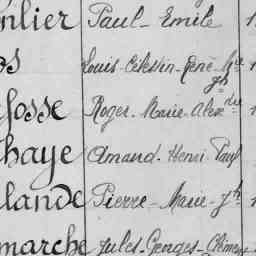 nlier Paul-Emile
os Louis-Célestin-René-Mie
Jh
fosse Roger-Marie-Alexdre
haye Amand-Henri-Paul
lande Pierre-Marie-Jh
marche Jules-Georges-